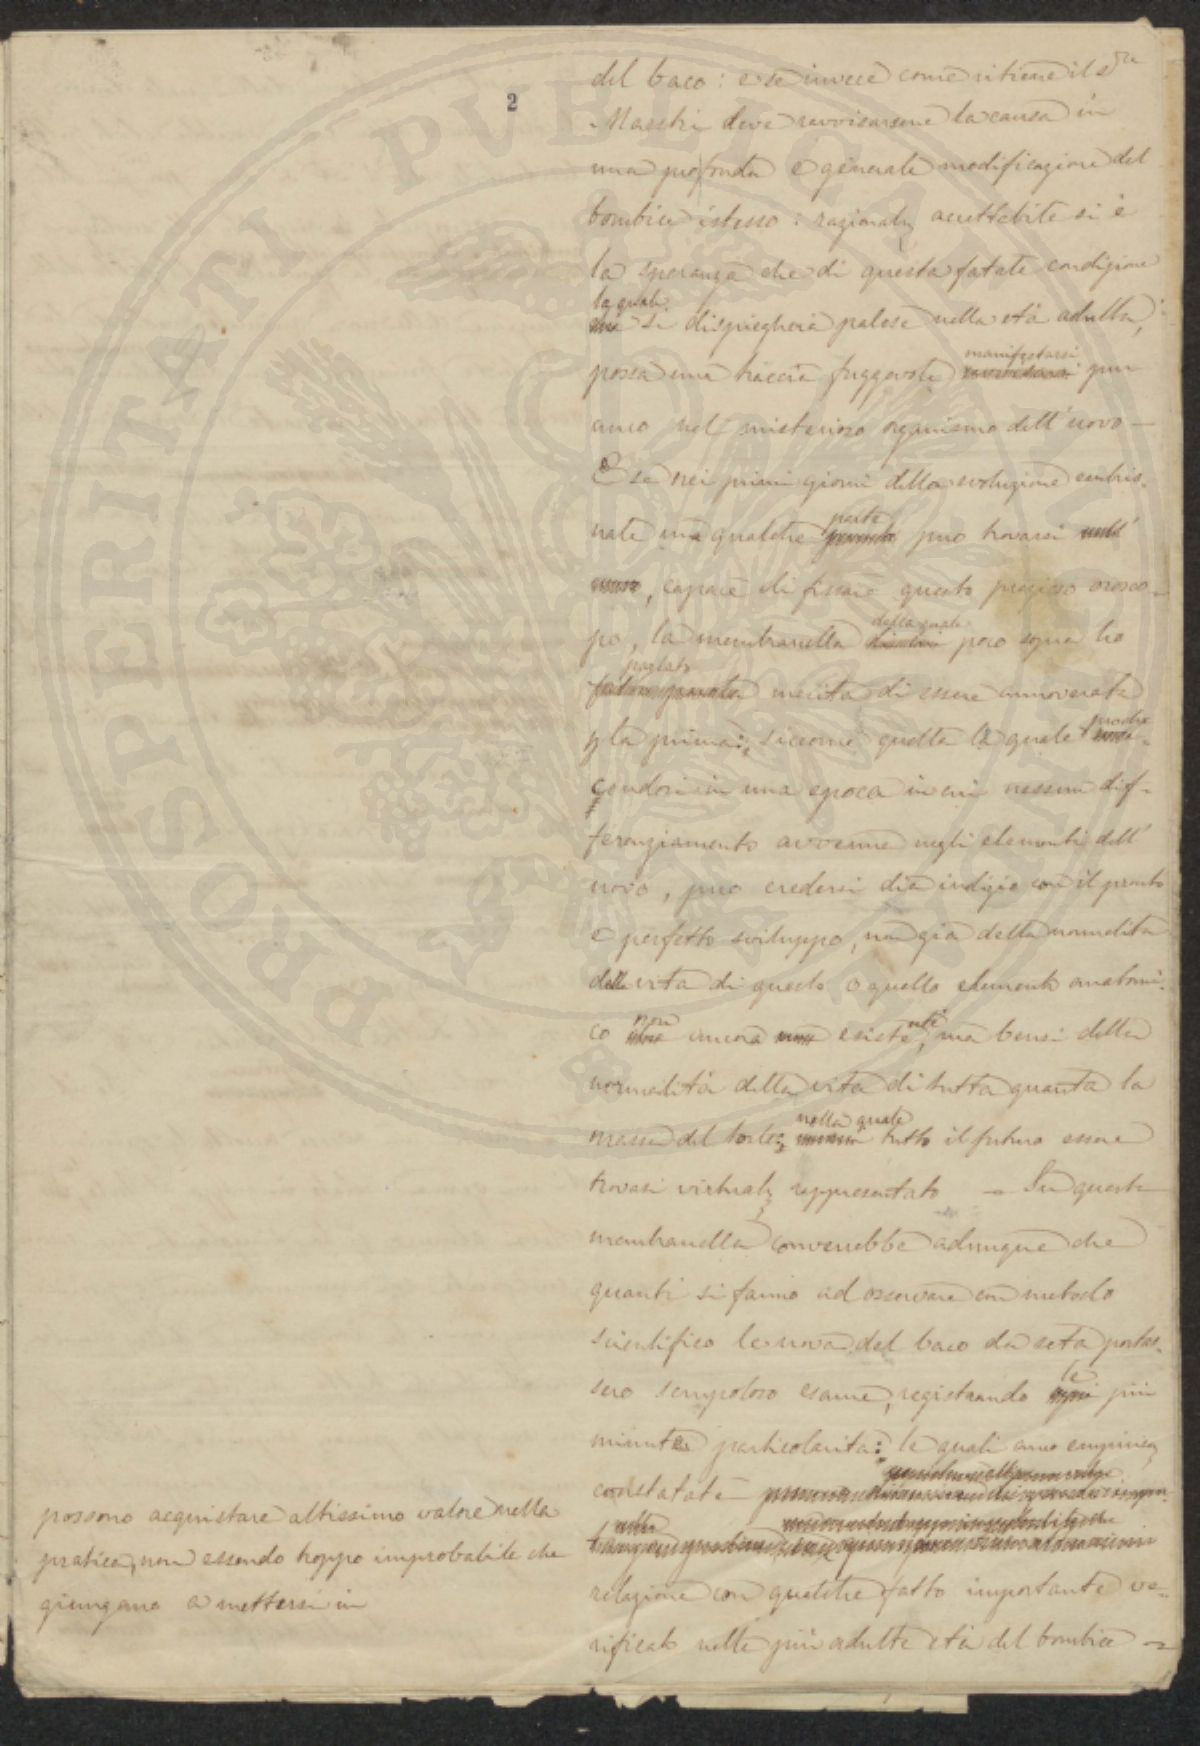 2
del baco: e se invece come ritiene il S.r
Maestri deve ravvisarsene la causa in
una profonda e generale modificazione del
bombice istesso: razionalm. accettabile si è
la speranza che di questa fatale condizione
la quale si dispiegherà palese nella età adulta,
possa una traccia fuggevole manifestarsi pur
anco nel misterioso organismo dell'uovo —
E se nei primi giorni della evoluzione embrio-
nale una qualche parte può trovarsi
, capace di fissare questo prezioso orosco-
po, la membranella della quale poco sopra ho
parlato merita di essere annoverata
p la prima; siccome quella la quale produ-
cendosi in una epoca in cui nessun dif-
ferenziamento avvenne negli elementi dell'
uovo, può credersi dia indizio con il pronto
e perfetto sviluppo, non già della normalità
della vita di questo o quello elemento anatomi-
co non ancora esistente, ma bensì della
normalità della vita di tutta quanta la
massa del torlo, nella quale tutto il futuro essere
trovasi virtualm. rappresentato — Su questa
membranella converrebbe adunque che
quanti si fanno ad osservare con metodo
scientifico le uova del baco da seta portas-
sero scrupoloso esame, registrando le più
minute particolarità: le quali anco empiricam.
constatate
possono acquistare altissimo valore nella
pratica, non essendo troppo improbabile che
giungano a mettersi in
relazione con qualche fatto importante ve-
rificato nelle più adulte età del bombice —
PROSPERITATI PVBLICAE